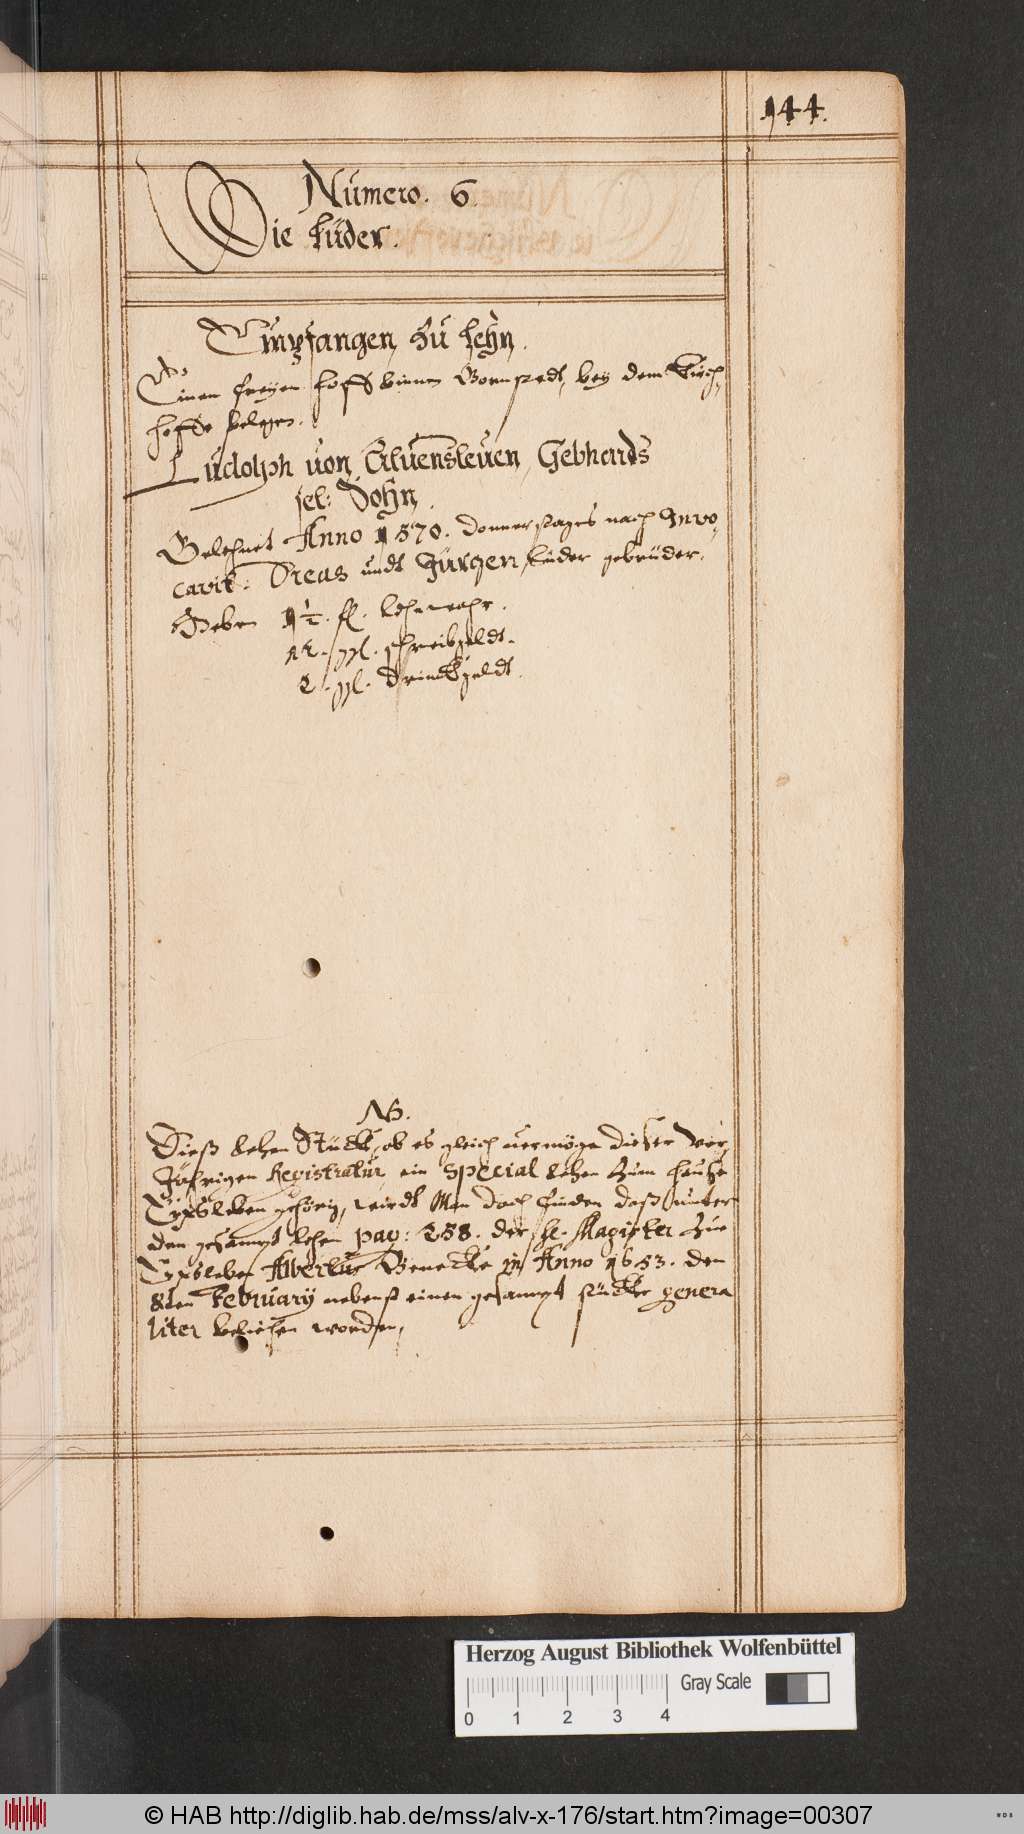 144.
Numero. 6.
Die Lüder.
Empfangen zu Lehn.
Einen freyen hoff binnen Bornstedt, bey dem Kirch
hoffe belegen.
Ludolph von Alvensleven, Gebhards
sel: Sohn.
Belehnet Anno 1570. Donnerstages nach Invo
cavit: Dreas undt Jürgen Lüder gebrüder.
Geben 1½. fl. Lehnwahr.
12. gl. schreibgeldt.
2. gl. Drinckgeldt.
NB.
Dieß Lehen Stücke, ob es gleich vermöge dieser Vor
Jährigen Registratur ein Special Lehen zum hause
Eyxsleben gehörig, wirdt Man doch finden daß unter
den gesampt Lehen pag: 238. der H. Magister zue
Eyxsleben Albertus Benecke in Anno 1653. den
8ten February nebenst einen gesampt stücke genera
liter beliehen worden,
Herzog August Bibliothek Wolfenbüttel
Gray Scale
0 1 2 3 4
© HAB http://diglib.hab.de/mss/alv-x-176/start.htm?image=00307